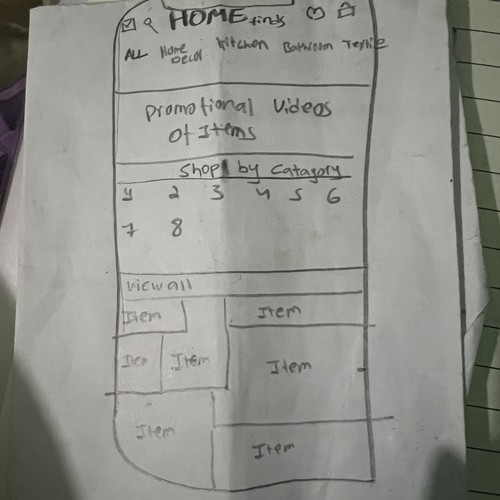 HOME finds
ALL Home Decor Kitchen Bathroom Textile
Promotional Videos
Of Items
Shop by Catagory
y 2 3 4 5 6
7 8
View all
Item Item
Item Item Item
Item Item